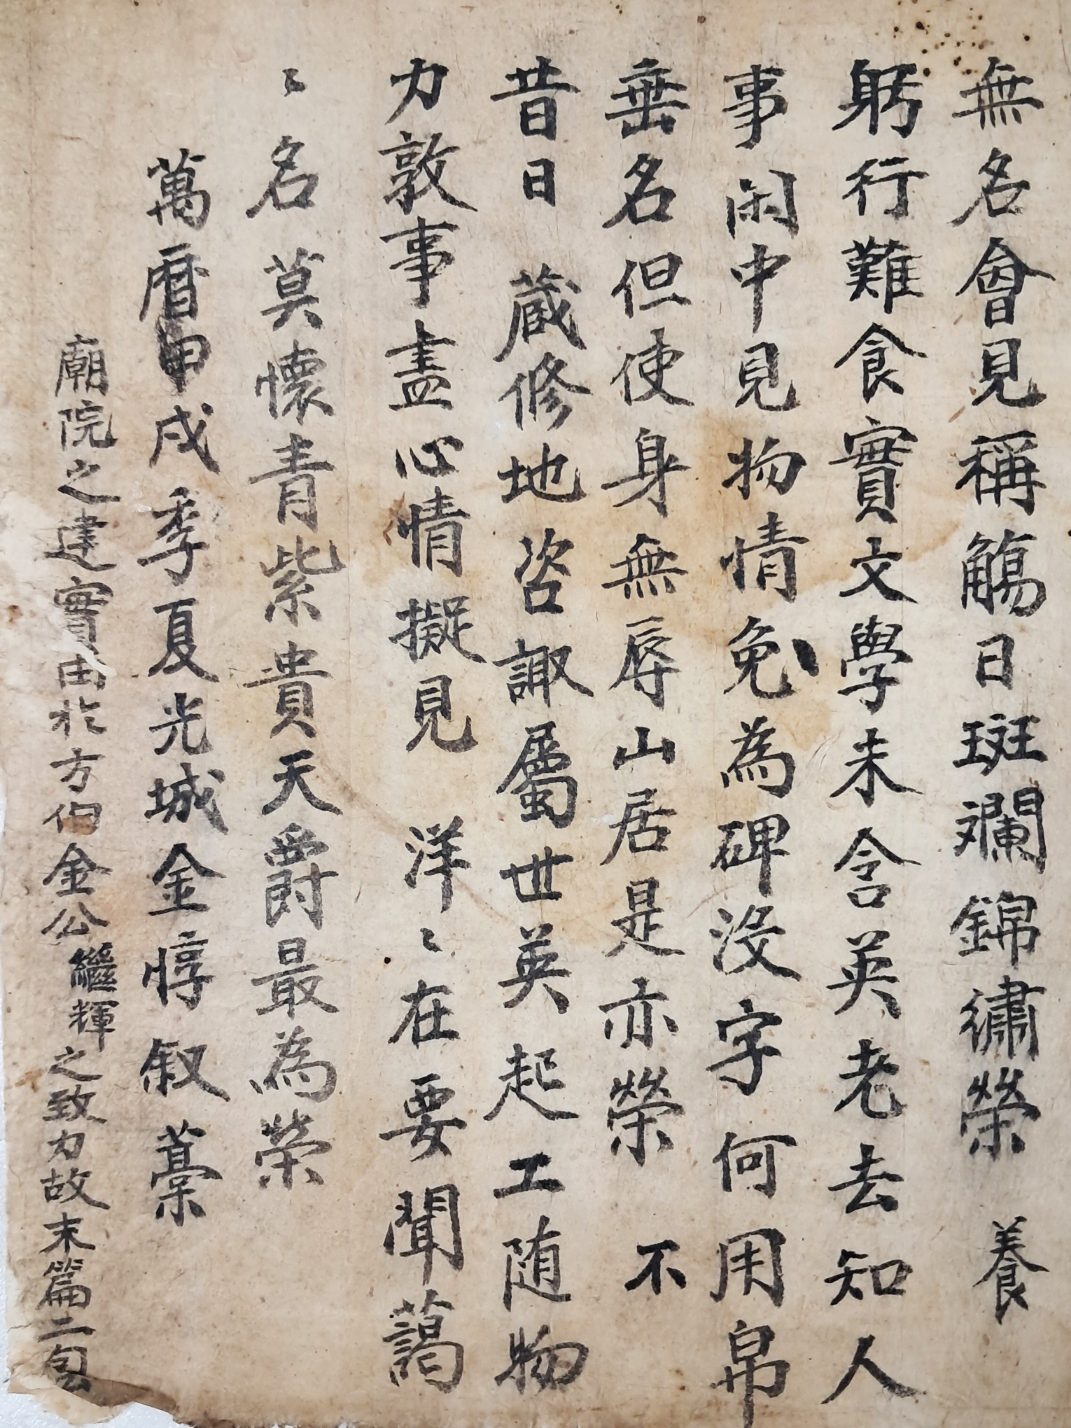 無名會見稱觴日斑斕錦繡榮 養
躬行難食實文學未含英老去知人
事闲中見物情免為碑沒字何用帛
垂名但使身無辱山居是亦榮 不
昔日 蔵修地咨諏屬世英起工随物
力敦事盡心情擬見 洋〻在要聞藹
〻名莫懷青紫貴天爵最為榮
萬曆甲戌季夏光城金惇叙藁
廟院之建實由於方伯金公繼輝之致力故末篇二句